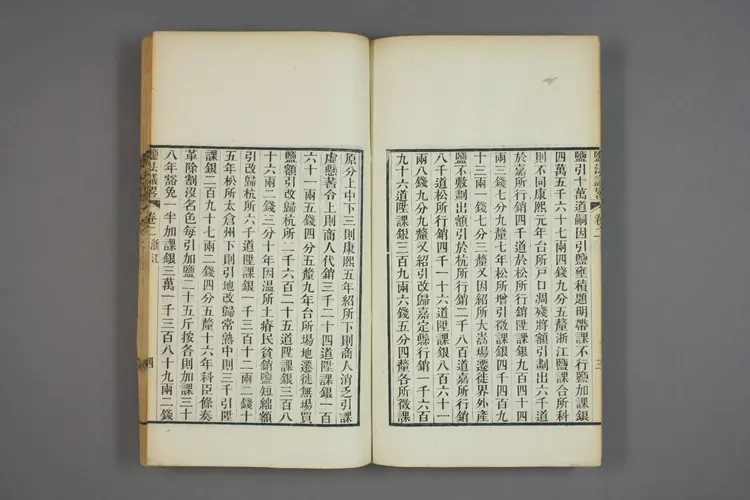 鹽法議略 卷二 三
鹽引十萬道嗣因引鹽壅積題明帶課不行鹽加課銀
四萬五千六十七兩四錢九分五釐浙江鹽課合所科
則不同康熙元年台所戸口凋殘將額引劃出六千道
於嘉所行銷四千道於松所行銷陞課銀九百四十四
兩三錢七分九釐七年松所增引徵課銀四千四百九
十三兩一錢七分三釐又因紹所大嵩場遷徙界外產
鹽不敷劃出額引於杭所行銷二千八百道嘉所行銷
八千道松所行銷四千一十六道陞課銀八百六十一
兩八錢九分九釐又紹引改歸嘉定縣行銷一千六百
九十六道陞課銀三百九兩六錢五分四釐各所徵課
原分上中下三則康熙五年紹所下則商人消乏引課
虛懸著令上則商人代銷三千二十四道陞課銀一百
六十一兩五錢四分五釐九年台所場地遷徙無場買
鹽額引改歸杭所二千六百二十五道陞課銀三百八
十六兩二錢三分十年因溫所土瘠民貧銷鹽短絀額
引改歸杭所六千道陞課銀一千三百十二兩二錢十
五年松所太倉州下則引地改歸常熟中則三千引陞
課銀二百九十七兩二錢四分五釐十六年科臣條奏
革除割沒名色每引加鹽二十五斤按各則加課三十
八年豁免一半加課銀三萬一千三百八十九兩二錢
鹽法議略 卷二 浙江 四